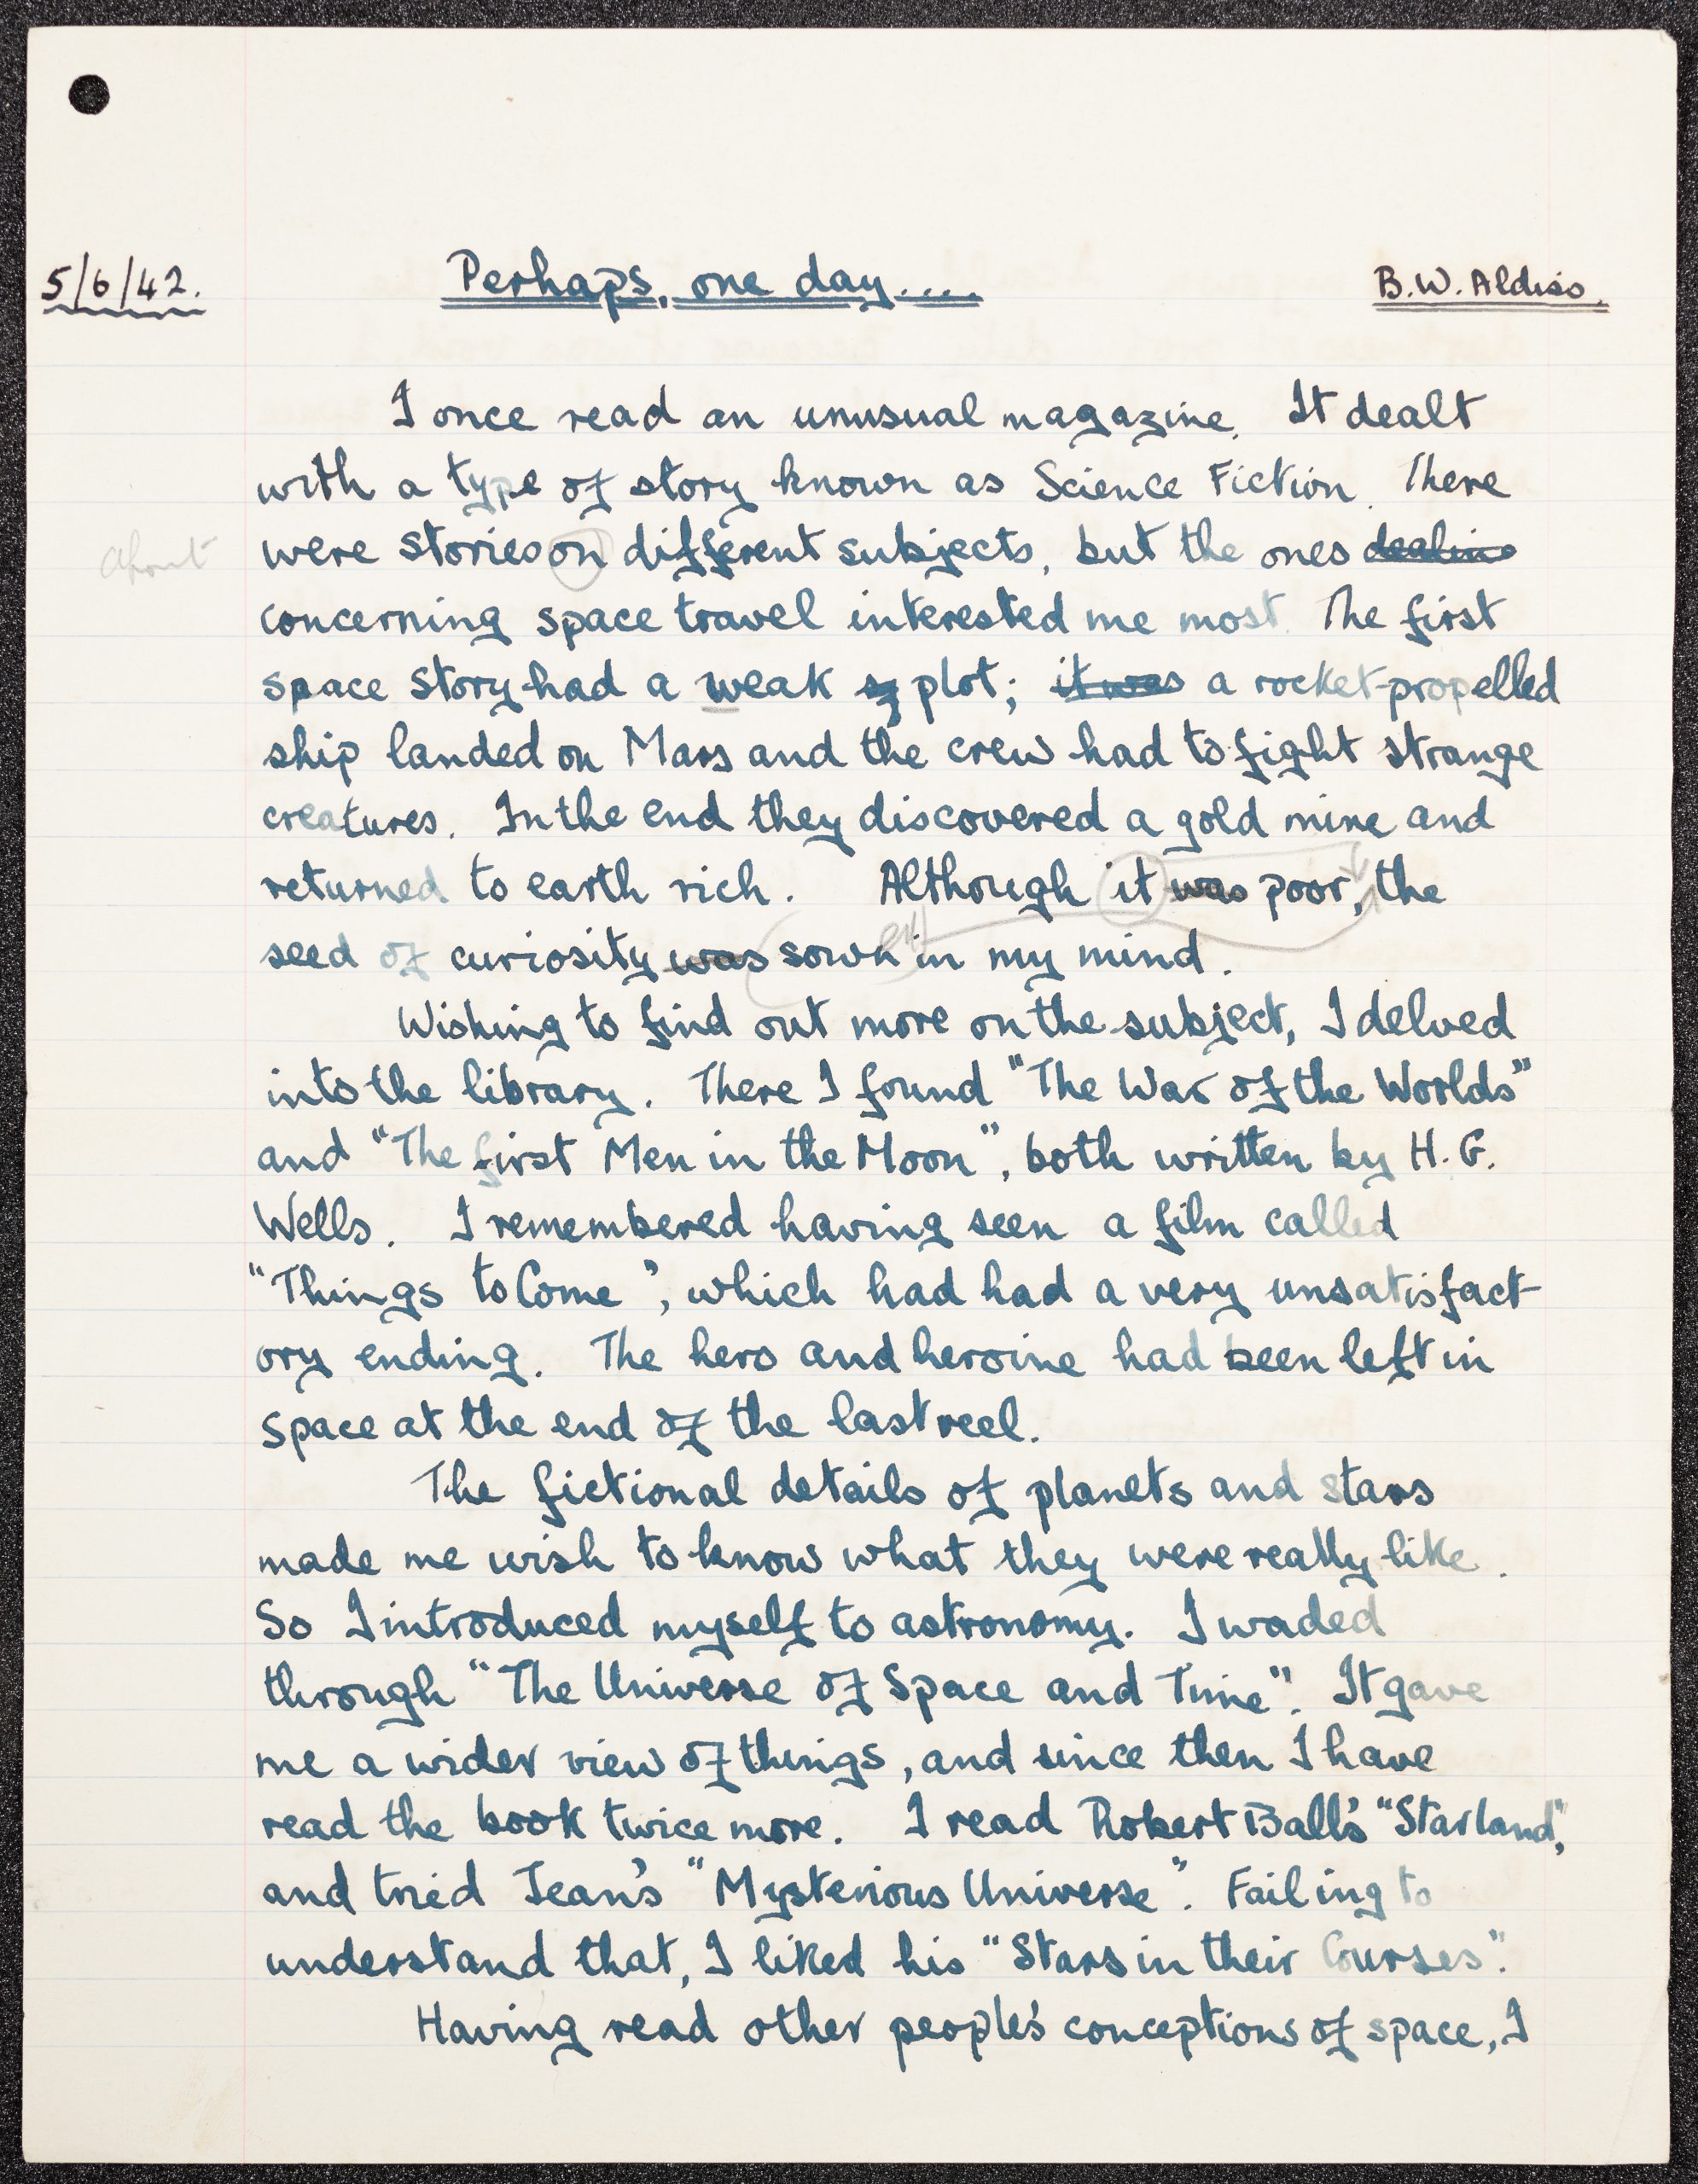 5/6/42. Perhaps, one day.... B.W. Aldiss.
I once read an unusual magazine. It dealt
with a type of story known as Science Fiction. There
about
were stories on different subjects, but the ones dealing
concerning space travel interested me most. The first
space story had a weak plot; it was a rocket-propelled
ship landed on Mars and the crew had to fight strange
creatures. In the end they discovered a gold mine and
returned to earth rich. Although it was poor, the
seed of curiosity was sown in my mind.
Wishing to find out more on the subject, I delved
into the library. There I found "The War of the Worlds"
and "The first Men in the Moon", both written by H. G.
Wells. I remembered having seen a film called
"Things to Come", which had had a very unsatisfact-
ory ending. The hero and heroine had been left in
space at the end of the last reel.
The fictional details of planets and stars
made me wish to know what they were really like.
So I introduced myself to astronomy. I waded
through "The Universe of Space and Time". It gave
me a wider view of things, and since then I have
read the book twice more. I read Robert Ball's "Starland",
and tried Jean's "Mysterious Universe". Failing to
understand that, I liked his "Stars in their Courses".
Having read other people's conceptions of space, I